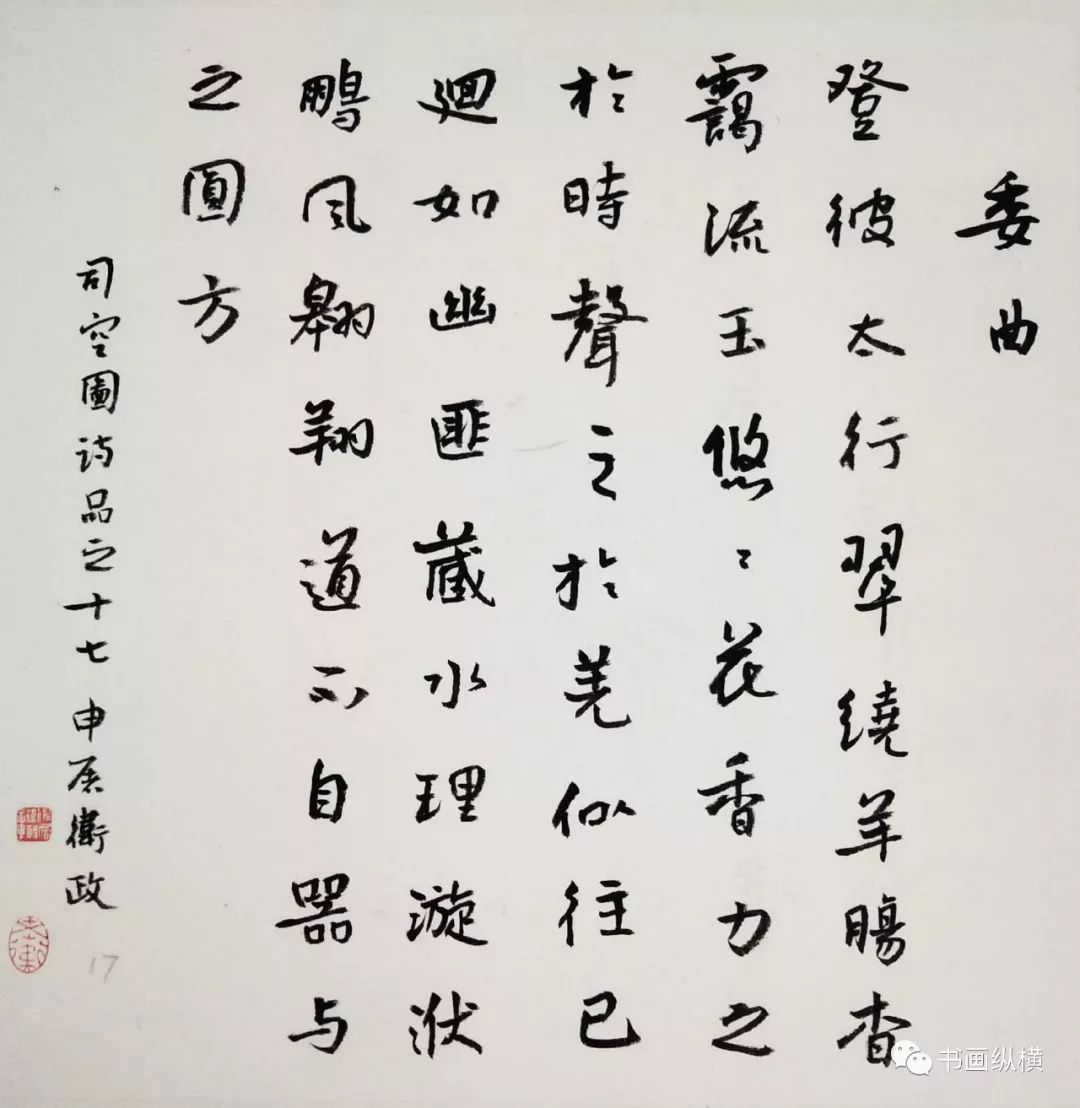 委曲
登彼太行翠繞羊腸杳
靄流玉悠〻花香力之
於時聲之於羌似往已
迴如幽匪藏水理漩洑
鵬風翱翔道不自器与
之圓方
司空圖诗品之十七 申 衛政
17
书画纵横